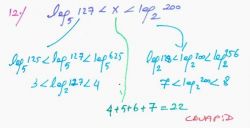 12)
log₅ 127 < x < log₂ 200
log₅ 125 < log₅ 127 < log₅ 625
3 < log₅ 127 < 4
log₂ 128 < log₂ 200 < log₂ 256
7 < log₂ 200 < 8
4+5+6+7=22
CEVAP:D